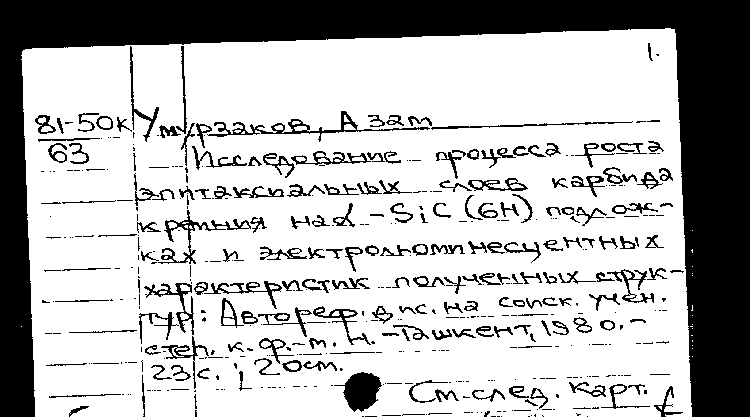 1.
81-50к Умурзаков, Азам
63
Исследование процесса роста
эпитаксиальных слоев карбида
кремния на α-SiC (6H) подлож-
ках и электролюминесцентных
характеристик полученных струк-
тур: Автореф. дис. на соиск. учен.
степ. к. ф.-м. н. - Ташкент, 1980. -
23 с.; 20 см.
См. след. карт.